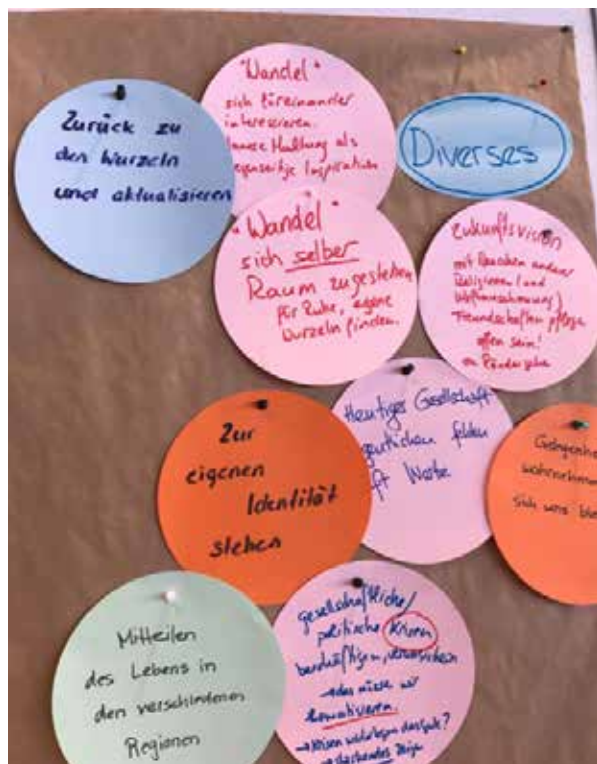 Zurück zu
den Wurzeln
und aktualisieren
"Wandel"
sich füreinander
interessieren.
Haltung als
Inspiration
Diverses
"Wandel"
sich selber
Raum zugestehen
für Ruhe, eigene
Wurzeln finden.
Zukunftsvision
mit anderer
Religionen (und
Weltanschauung)
Freundschaften pflegen
offen sein!
Zur
eigenen
Identität
stehen
Heutiger Gesellschaft
fehlen
oft Werte
wahrnehmen
sich uns
Mitteilen
des Lebens in
den verschiedenen
Regionen
gesellschaftliche/
politische Krisen
beschäftigen, verunsichern
→ das müssen wir
thematisieren.
→ Krisen